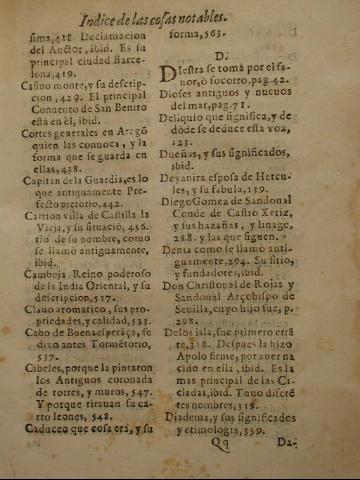 Indice de las cosas notables.
sima, 418. Declamacion
del Auctor, ibid. Es su
principal ciudad Barce-
lona, 419.
Casino monte, y su descrip-
cion, 429. El principal
Conuento de San Benito
està en èl, ibid.
Cortes generales en Aragõ
quien las conuoca, y la
forma que se guarda en
ellas, 438.
Capitan de la Guardia, es lo
que antiguamente Pre-
fecto pretorio, 442.
Carrion villa de Castilla la
Vieja, y su situaciõ, 456.
rio de su nombre, como
se llamò antiguamente,
ibid.
Camboja Reino poderoso
de la India Oriental, y su
descripcion, 517.
Clauo aromatico, sus pro-
priedades, y calidad, 533.
Cabo de Buena esperãça, se
dixo antes Tormẽtorio,
537.
Cibeles, porque la pintaron
los Antiguos coronada
de torres, y muros, 547.
Y porque tirauan su ca-
rro leones, 548.
Caduceo que cosa era, y su
fornia, 563.
D.
Diestra se toma por el fa-
uor, ò socorro, pag. 42.
Dioses antiguos y nueuos
del mar, pag. 71.
Deliquio que significa, y de
dõde se deduce esta voz,
123.
Dueñas, y sus significados,
ibid.
Deyanira esposa de Hercu-
les, y su fabula, 139.
Diego Gomez de Sandoual
Conde de Castro Xeriz,
y sus hazañas, y linage,
288. y las que siguen.
Denia como se llamò anti-
guamente, 294. Su sitio,
y fundadores, ibid.
Don Christoual de Rojas y
Sandoual Arçobispo de
Seuilla, cuyo hijo fue, p.
298.
Delos isla, fue primero errã
te, 318. Despues la hizo
Apolo firme, por auer na
cido en ella, ibid. Es la
mas principal de las Ci-
cladas, ibid. Tuuo diferẽ
tes nombres, 319.
Diadema, y sus significados
y etimologia, 359.
Qq Da-